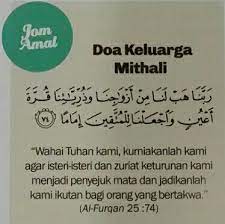 Jom
Amal
Doa Keluarga
Mithali
رَبَّنَا هَبْ لَنَا مِنْ أَزْوَاجِنَا وَذُرِّيَّتِنَا قُرَّةَ
أَعْيُنٍ وَاجْعَلْنَا لِلْمُتَّقِينَ إِمَامًا ﴿٧٤﴾
“Wahai Tuhan kami, kurniakanlah kami
agar isteri-isteri dan zuriat keturunan kami
menjadi penyejuk mata dan jadikanlah
kami ikutan bagi orang yang bertakwa.”
(Al-Furqan 25 :74)